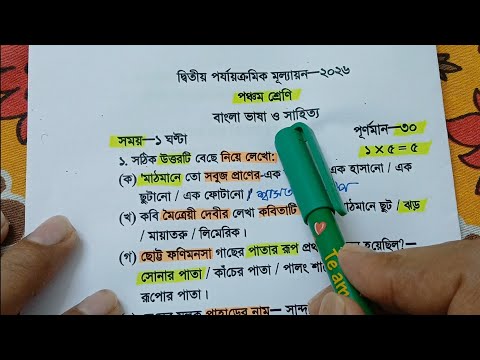 দ্বিতীয় পর্যায়ক্রমিক মূল্যায়ন—২০২৬
পঞ্চম শ্রেণি
বাংলা ভাষা ও সাহিত্য
সময়—১ ঘণ্টা পূর্ণমান—৩০
১. সঠিক উত্তরটি বেছে নিয়ে লেখো: ১ × ৫ = ৫
(ক) 'মাঠমানে তো সবুজ প্রাণের-এক এক হাসানো / এক
ছুটানো / এক ফোটানো /
(খ) কবি মৈত্রেয়ী দেবীর লেখা কবিতাটি মাঠমানে ছুট / ঝড়
/ মায়াতরু / লিমেরিক।
(গ) ছোট্ট ফণিমনসা গাছের পাতার রূপ হয়েছিল?—
সোনার পাতা / কাঁচের পাতা / পালং
রূপোর পাতা।
পাহাড়ের নাম—
Te am